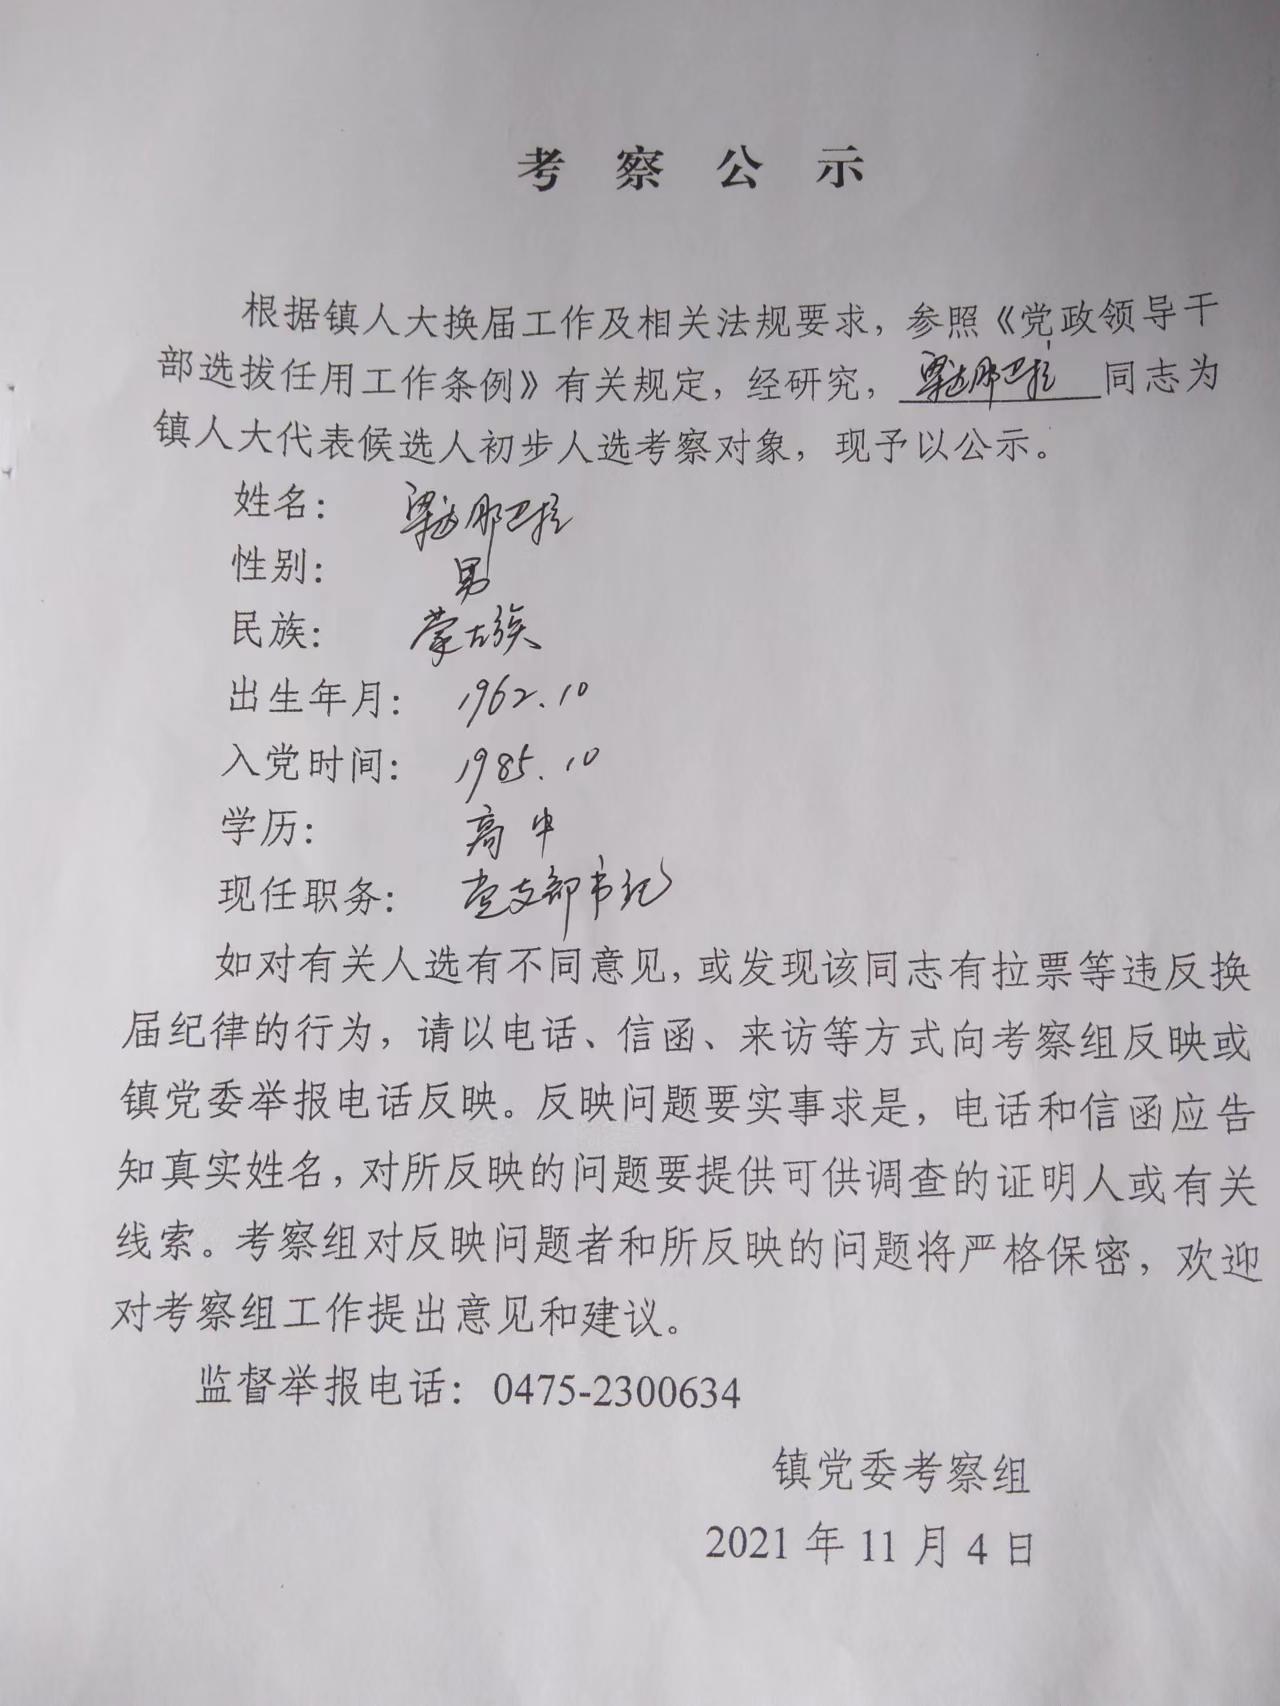 考察公示
根据镇人大换届工作及相关法规要求，参照《党政领导干
部选拔任用工作条例》有关规定，经研究，梁那巴拉同志为
镇人大代表候选人初步人选考察对象，现予以公示。
姓名：梁那巴拉
性别：男
民族：蒙古族
出生年月：1962.10
入党时间：1985.10
学历：高中
现任职务：党支部书记
如对有关人选有不同意见，或发现该同志有拉票等违反换
届纪律的行为，请以电话、信函、来访等方式向考察组反映或
镇党委举报电话反映。反映问题要实事求是，电话和信函应告
知真实姓名，对所反映的问题要提供可供调查的证明人或有关
线索。考察组对反映问题者和所反映的问题将严格保密，欢迎
对考察组工作提出意见和建议。
监督举报电话：0475-2300634
镇党委考察组
2021年11月4日